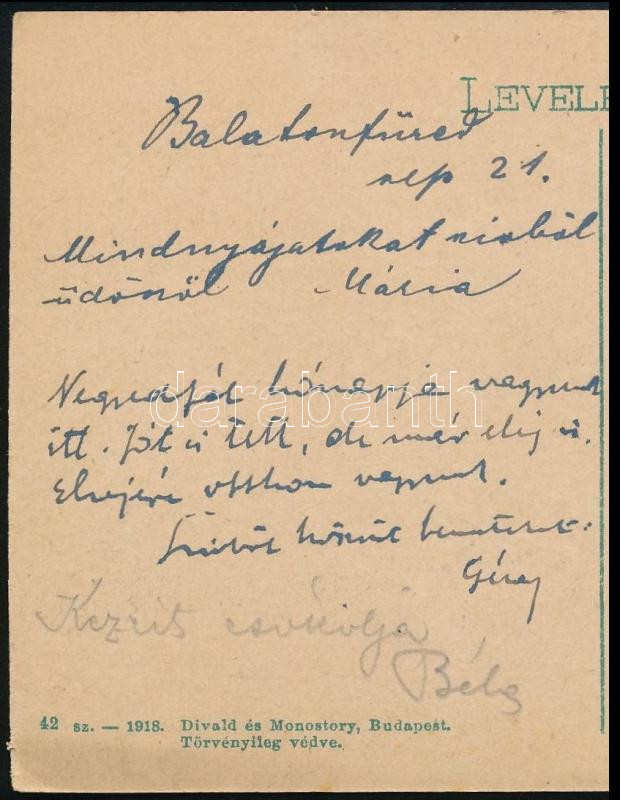 LEVELE
Balatonfüred
sep 21.
Mindnyájatokat sziból
üdözöl Mária
hónapja vagyunk
itt. Jót is tett, de már elég is.
Elsejére otthon vagyunk.
Géza
Kezeit csókolja
Béla
42 sz. — 1918. Divald és Monostory, Budapest.
Törvényileg védve.
darabanth